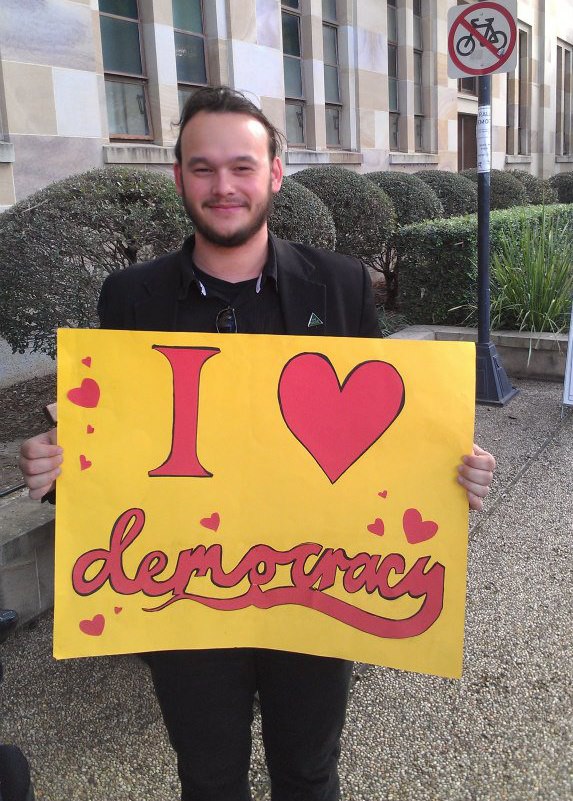 I
democracy